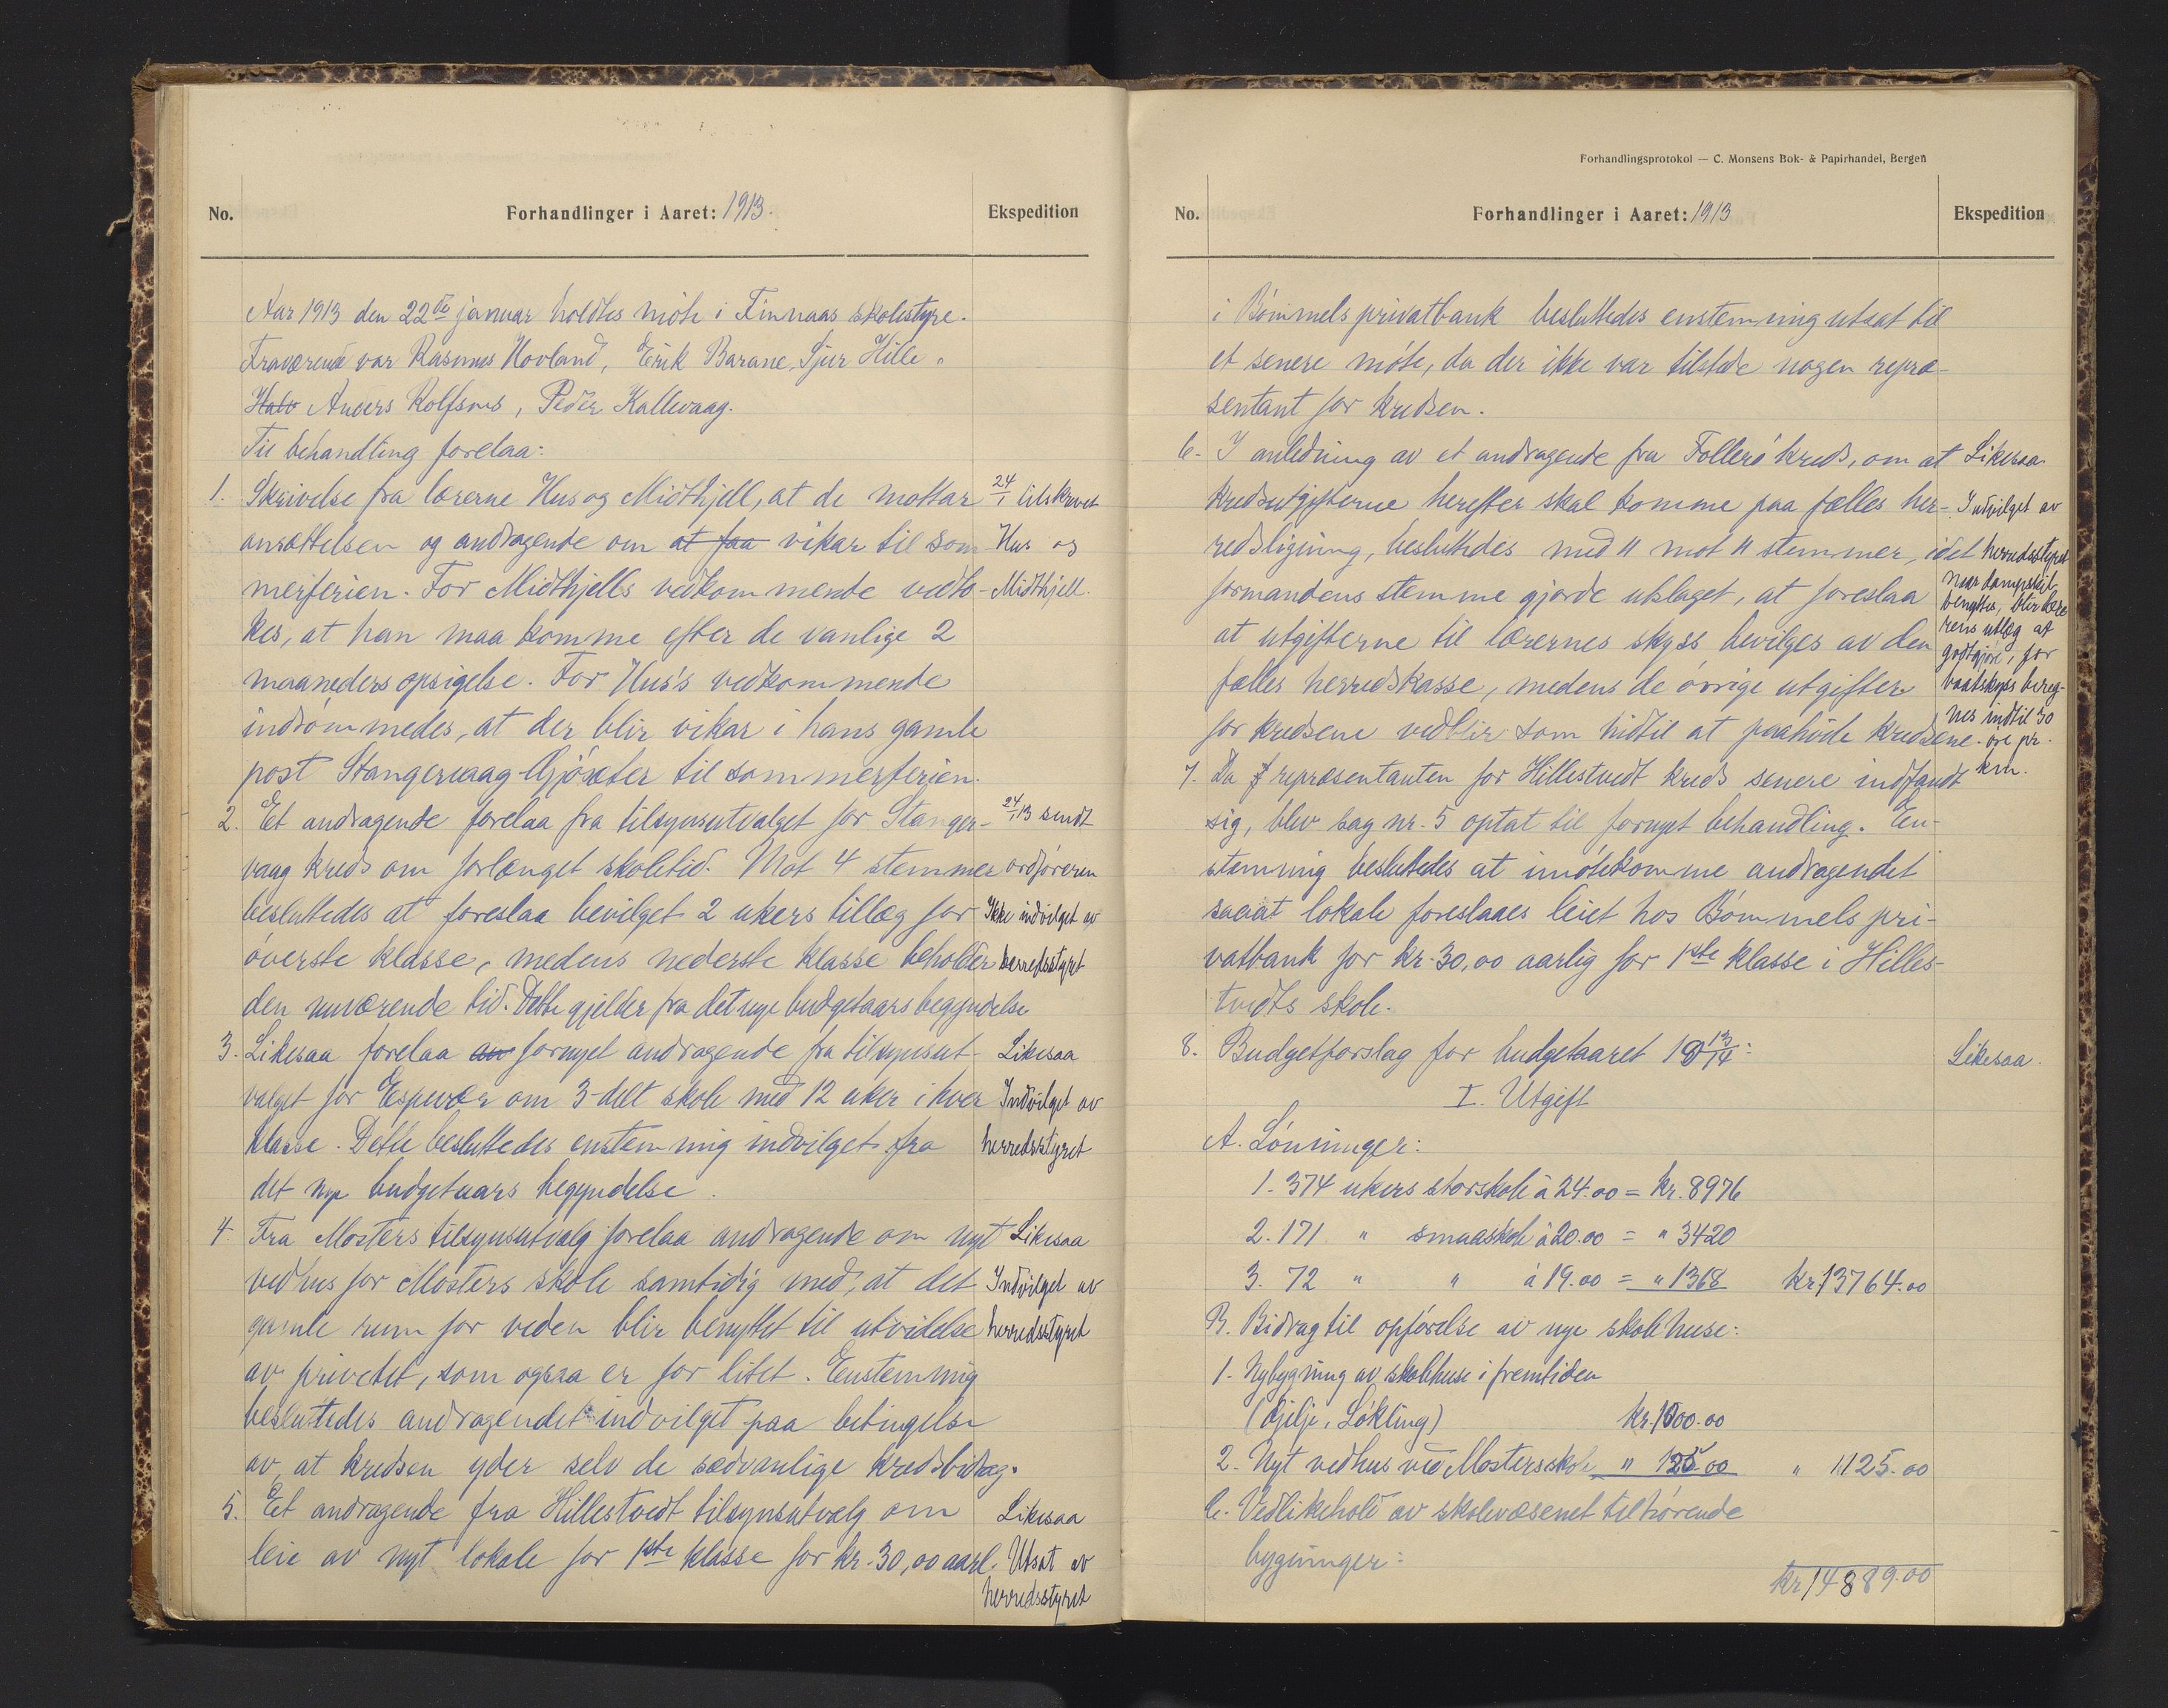 No.
Forhandlinger i Aaret: 1913.
Ekspedition
Aar 1913 den 22de januar holdtes möte i Finnaas skolestyre.
Fraværende var Rasmus Hovland, Erik Barane, Sjur Hille-
Halv Anders Rolfsnes, Peder Kallevaag.
Til behandling forelaa:
1. Skrivelse fra lærerne Hus og Midthjell, at de mottar
ansættelsen og andragende om at faa vikar til som
merferien. For Midthjells vedkommende vedto-
kes, at han maa komme efter de vanlige 2
maaneders opsigelse. For Hus's vedkommende
indrömmedes, at der blir vikar i hans gamle
post Stangervaag-Gjösæter til sommerferien.
24/1 tilskrevet
Hus og
Midthjell.
2. Et andragende forelaa fra tilsynsutvalget for Stanger-
vaag kreds om forlænget skoletid. Mot 4 stemmer
besluttedes at foreslaa bevilget 2 ukers tillæg for
överste klasse, medens nederste klasse beholder
den nuværende tid. Dette gjelder fra det nye budgetaars begyndelse
24/1 13 sendt
ordföreren
Ikke indvilget av
herredsstyret
3. Likesaa forelaa av fornyet andragende fra tilsynsut-
valget for Espevær om 3-delt skole med 12 uker i hver
klasse. Dette besluttedes enstemmig indvilget fra
det nye budgetaars begyndelse.
Likesaa
Indvilget av
herredsstyret
4. Fra Mosters tilsynsutvalg forelaa andragende om nyt
vedhus for Mosters skole samtidig med, at det
gamle rum for veden blir benyttet til utvidelse
av privetet, som ogsaa er for litet. Enstemmig
besluttedes andragendet indvilget paa betingelse
av, at kredsen yder selv de sædvanlige kredsbidrag.
Likesaa
Indvilget av
herredsstyret
5. Et andragende fra Hillestvedt tilsynsutvalg om
leie av nyt lokale for 1ste klasse for kr. 30,00 aarl.
Likesaa
Utsat av
herredsstyret
Forhandlingsprotokol — C. Monsens Bok- & Papirhandel, Bergen
No.
Forhandlinger i Aaret: 1913
Ekspedition
i Bömmels privatbank besluttedes enstemmig utsat til
et senere möte, da der ikke var tilstede nogen repræ-
sentant for kredsen.
6. I anledning av et andragende fra Follerö kreds, om at
kredsutgifterne herefter skal komme paa fælles her-
redsligning, besluttedes med 11 mot 11 stemmer, idet
formandens stemme gjorde utslaget, at foreslaa
at utgifterne til lærernes skyss bevilges av den
fælles herredskasse, medens de övrige utgifter
for kredsene vedblir som hidtil at paahvile kredsene.
Likesaa
Indvilget av
herredsstyret
Naar dampskib
benyttes, blir lære
rens utlæg at
godtgjöre, for
baatskyss bereg-
nes indtil 30
öre pr.
km.
7. Da repræsentanten for Hillestvedt kreds senere indfandt
sig, blev sag nr. 5 optat til fornyet behandling. En-
stemmig besluttedes at imötekomme andragendet
saaat lokale foreslaaes leiet hos Bömmels pri-
vatbank for kr. 30,00 aarlig for 1ste klasse i Hilles-
tvedts skole.
8. Budgetforslag for budgetaaret 19 13/14:
Likesaa.
I. Utgift
A. Lönninger:
1. 374 ukers storskole à 24.00 = kr. 8976
2. 171 " smaaskole à 20.00 = " 3420
3. 72 " " à 19.00 = " 1368 kr. 13764.00
B. Bidrag til opförelse av nye skolehuse:
1. Nybygning av skolehuse i fremtiden
(Gjelje, Lökling) kr. 1000.00
2. Nyt vedhus ved Mosters skole " 125.00 " 1125.00
C. Vedlikehold av skolevæsenet tilhörende
bygninger:
kr. 14889.00